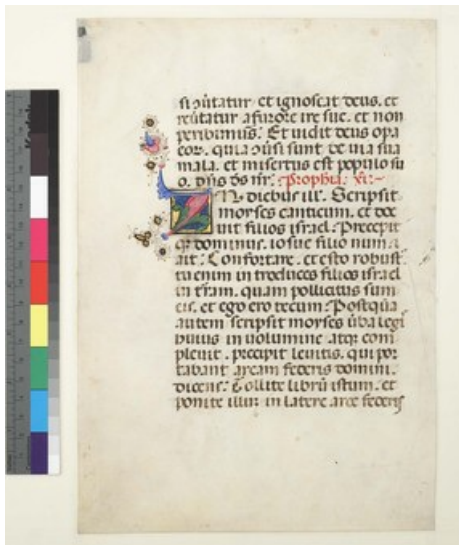 si ꝯûtatur et ignoscat deus. et
reûtatur a furore ire sue. et non
peribimus. Et uidit deus opa
eoꝝ. quia ꝯûsi sunt de uia sua
mala. et misertus est populo su
o. dn̄s ds nr̄. Prophia. xi.
IN diebus ill. Scripsit
moyses canticum. et doc
uit filios israel. Precepit
qꝫ dominus. iosue filio num. ⁊
ait. Confortare. et esto robust
tu enim introduces filios israel
in tr̄am. quam pollicitus sum
eis. et ego ero tecum. Postquā
autem scripsit moyses ûba legi
huius in uolumine atqꝫ com
pleuit. precepit leuitis. qui por
tabant arcam federis domini.
dicens. Tollite librū istum. et
ponite illum in latere arce federis
Kodak